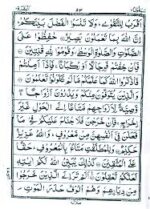 أَقْرَبُ لِلتَّقْوَىٰ وَلَا تَنسَوُا الْفَضْلَ بَيْنَكُمْ
إِنَّ اللَّهَ بِمَا تَعْمَلُونَ بَصِيرٌ حَٰفِظُوا عَلَى
الصَّلَوَٰتِ وَالصَّلَوٰةِ الْوُسْطَىٰ وَقُومُوا لِلَّهِ قَٰنِتِينَ
فَإِنْ خِفْتُمْ فَرِجَالًا أَوْ رُكْبَانًا فَإِذَا أَمِنتُمْ
فَاذْكُرُوا اللَّهَ كَمَا عَلَّمَكُم مَّا لَمْ تَكُونُوا تَعْلَمُونَ
وَالَّذِينَ يُتَوَفَّوْنَ مِنكُمْ وَيَذَرُونَ أَزْوَٰجًا
وَصِيَّةً لِّأَزْوَٰجِهِم مَّتَٰعًا إِلَى الْحَوْلِ غَيْرَ
إِخْرَاجٍ فَإِنْ خَرَجْنَ فَلَا جُنَاحَ عَلَيْكُمْ فِي مَا
فَعَلْنَ فِي أَنفُسِهِنَّ مِن مَّعْرُوفٍ وَاللَّهُ عَزِيزٌ
حَكِيمٌ وَلِلْمُطَلَّقَٰتِ مَتَٰعٌ بِالْمَعْرُوفِ حَقًّا
عَلَى الْمُتَّقِينَ كَذَٰلِكَ يُبَيِّنُ اللَّهُ لَكُمْ ءَايَٰتِهِ
لَعَلَّكُمْ تَعْقِلُونَ أَلَمْ تَرَ إِلَى الَّذِينَ خَرَجُوا
مِن دِيَٰرِهِمْ وَهُمْ أُلُوفٌ حَذَرَ الْمَوْتِ